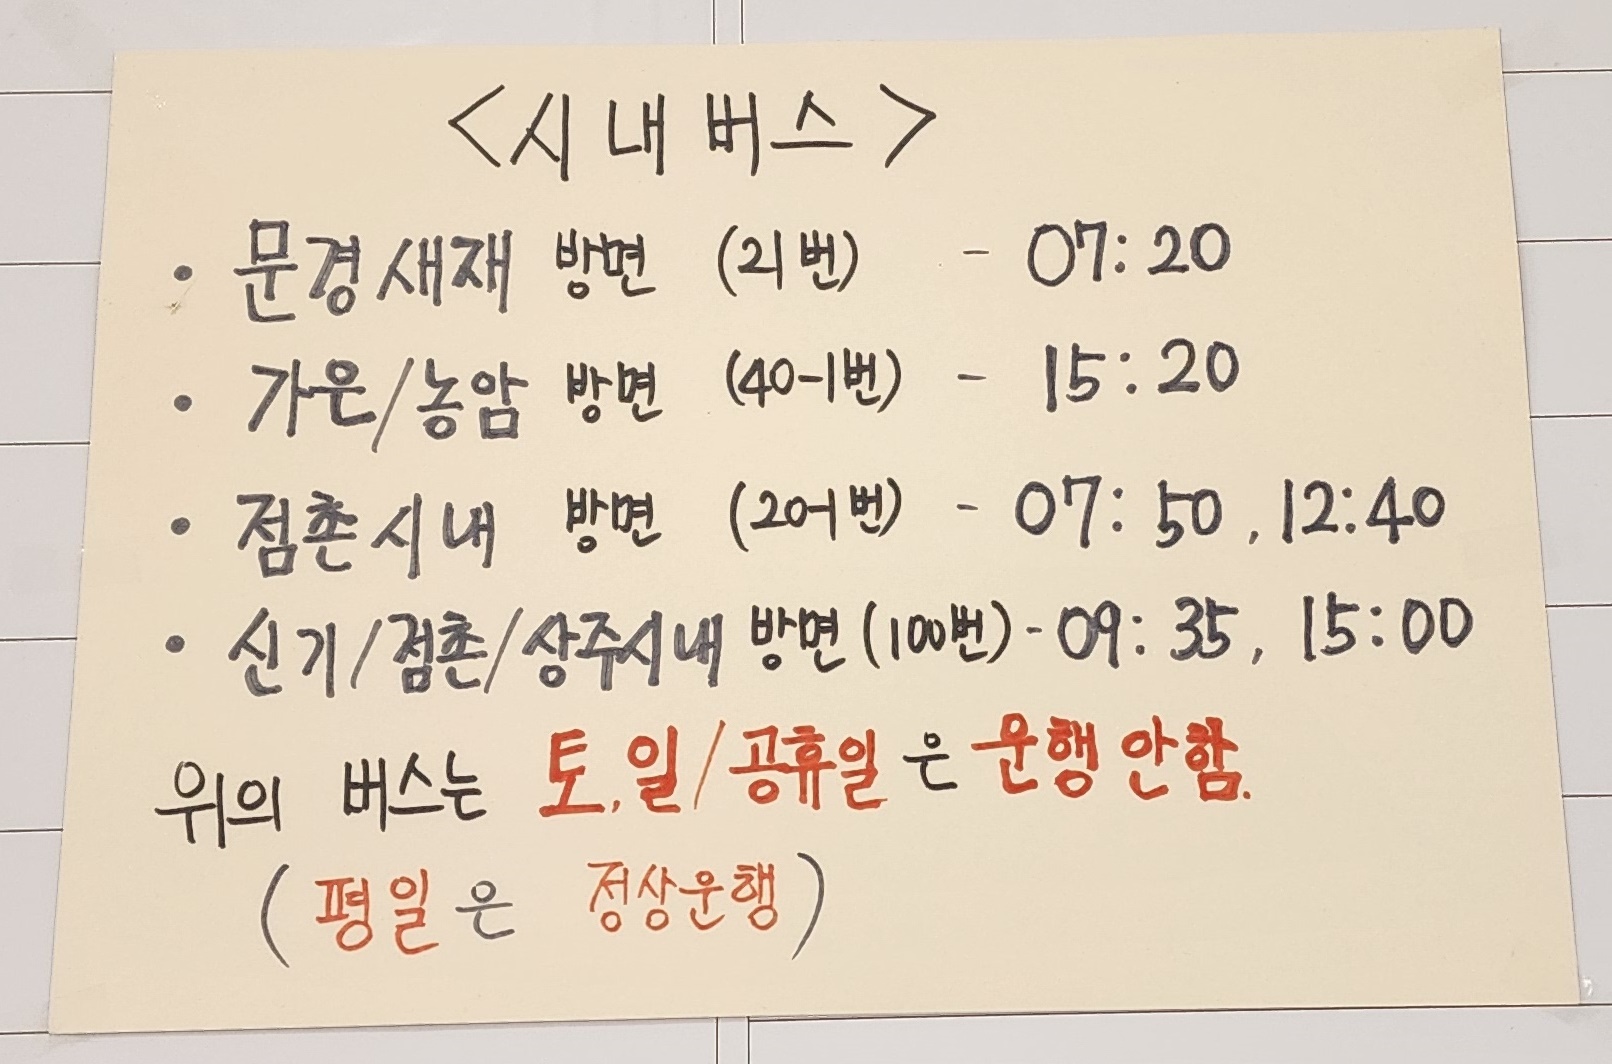 <시내버스>
• 문경새재 방면 (21번) - 07:20
• 가은/농암 방면 (40-1번) - 15:20
• 점촌시내 방면 (20-1번) - 07:50, 12:40
• 신기/점촌/상주시내 방면(100번) - 09:35, 15:00
위의 버스는 토,일/공휴일은 운행 안함.
(평일은 정상운행)